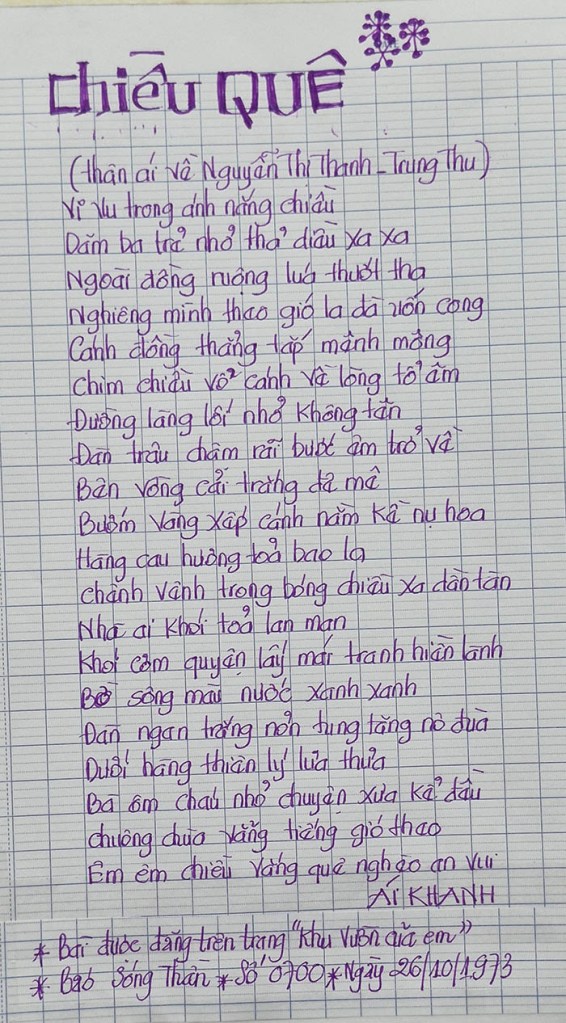 chiều QUÊ
(thân ái về Nguyễn Thị Thanh - Trung Thu)
Vi vu trong ánh nắng chiều
Dăm ba trẻ nhỏ thả diều xa xa
Ngoài đồng ruộng lúa thướt tha
Nghiêng mình theo gió la đà uốn cong
Cánh đồng thẳng tắp mênh mông
Chim chiều vỗ cánh về lòng tổ ấm
Đường làng lối nhỏ không tên
Đàn trâu chậm rãi bước êm trở về
Bên vồng cải trắng đê mê
Bướm vàng xếp cánh nằm kề nụ hoa
Hàng cau hương toả bao la
chênh vênh trong bóng chiều xa dần tàn
Nhà ai khói toả lan man
Khói cơm quyện lấy mái tranh hiền lành
Bờ sông màu nước xanh xanh
Đàn ngan trắng nõn tung tăng nô đùa
Dưới hàng thiên lý lưa thưa
Bà ôm cháu nhỏ chuyện xưa kể đều
chuông chùa vẳng tiếng gió theo
Êm êm chiều vàng quê nghèo an vui
ÁI KHANH
* Bài được đăng trên trang "khu vườn của em"
* Báo Sóng Thần * Số 0700 * Ngày 26/10/1973